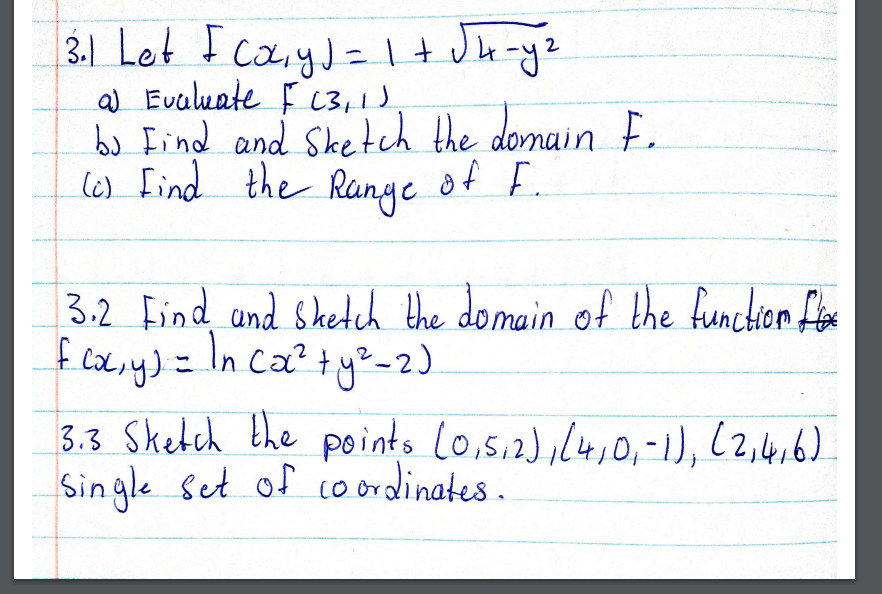 3.1 Let F(x,y) = 1 + √4-y²
a) Evaluate F(3,1)
b) Find and Sketch the domain F.
(c) Find the Range of F.
3.2 Find and sketch the domain of the function
f(x,y) = ln(x²+y²-2)
3.3 Sketch the points (0,5,2),(4,0,-1),(2,4,6)
single set of coordinates.